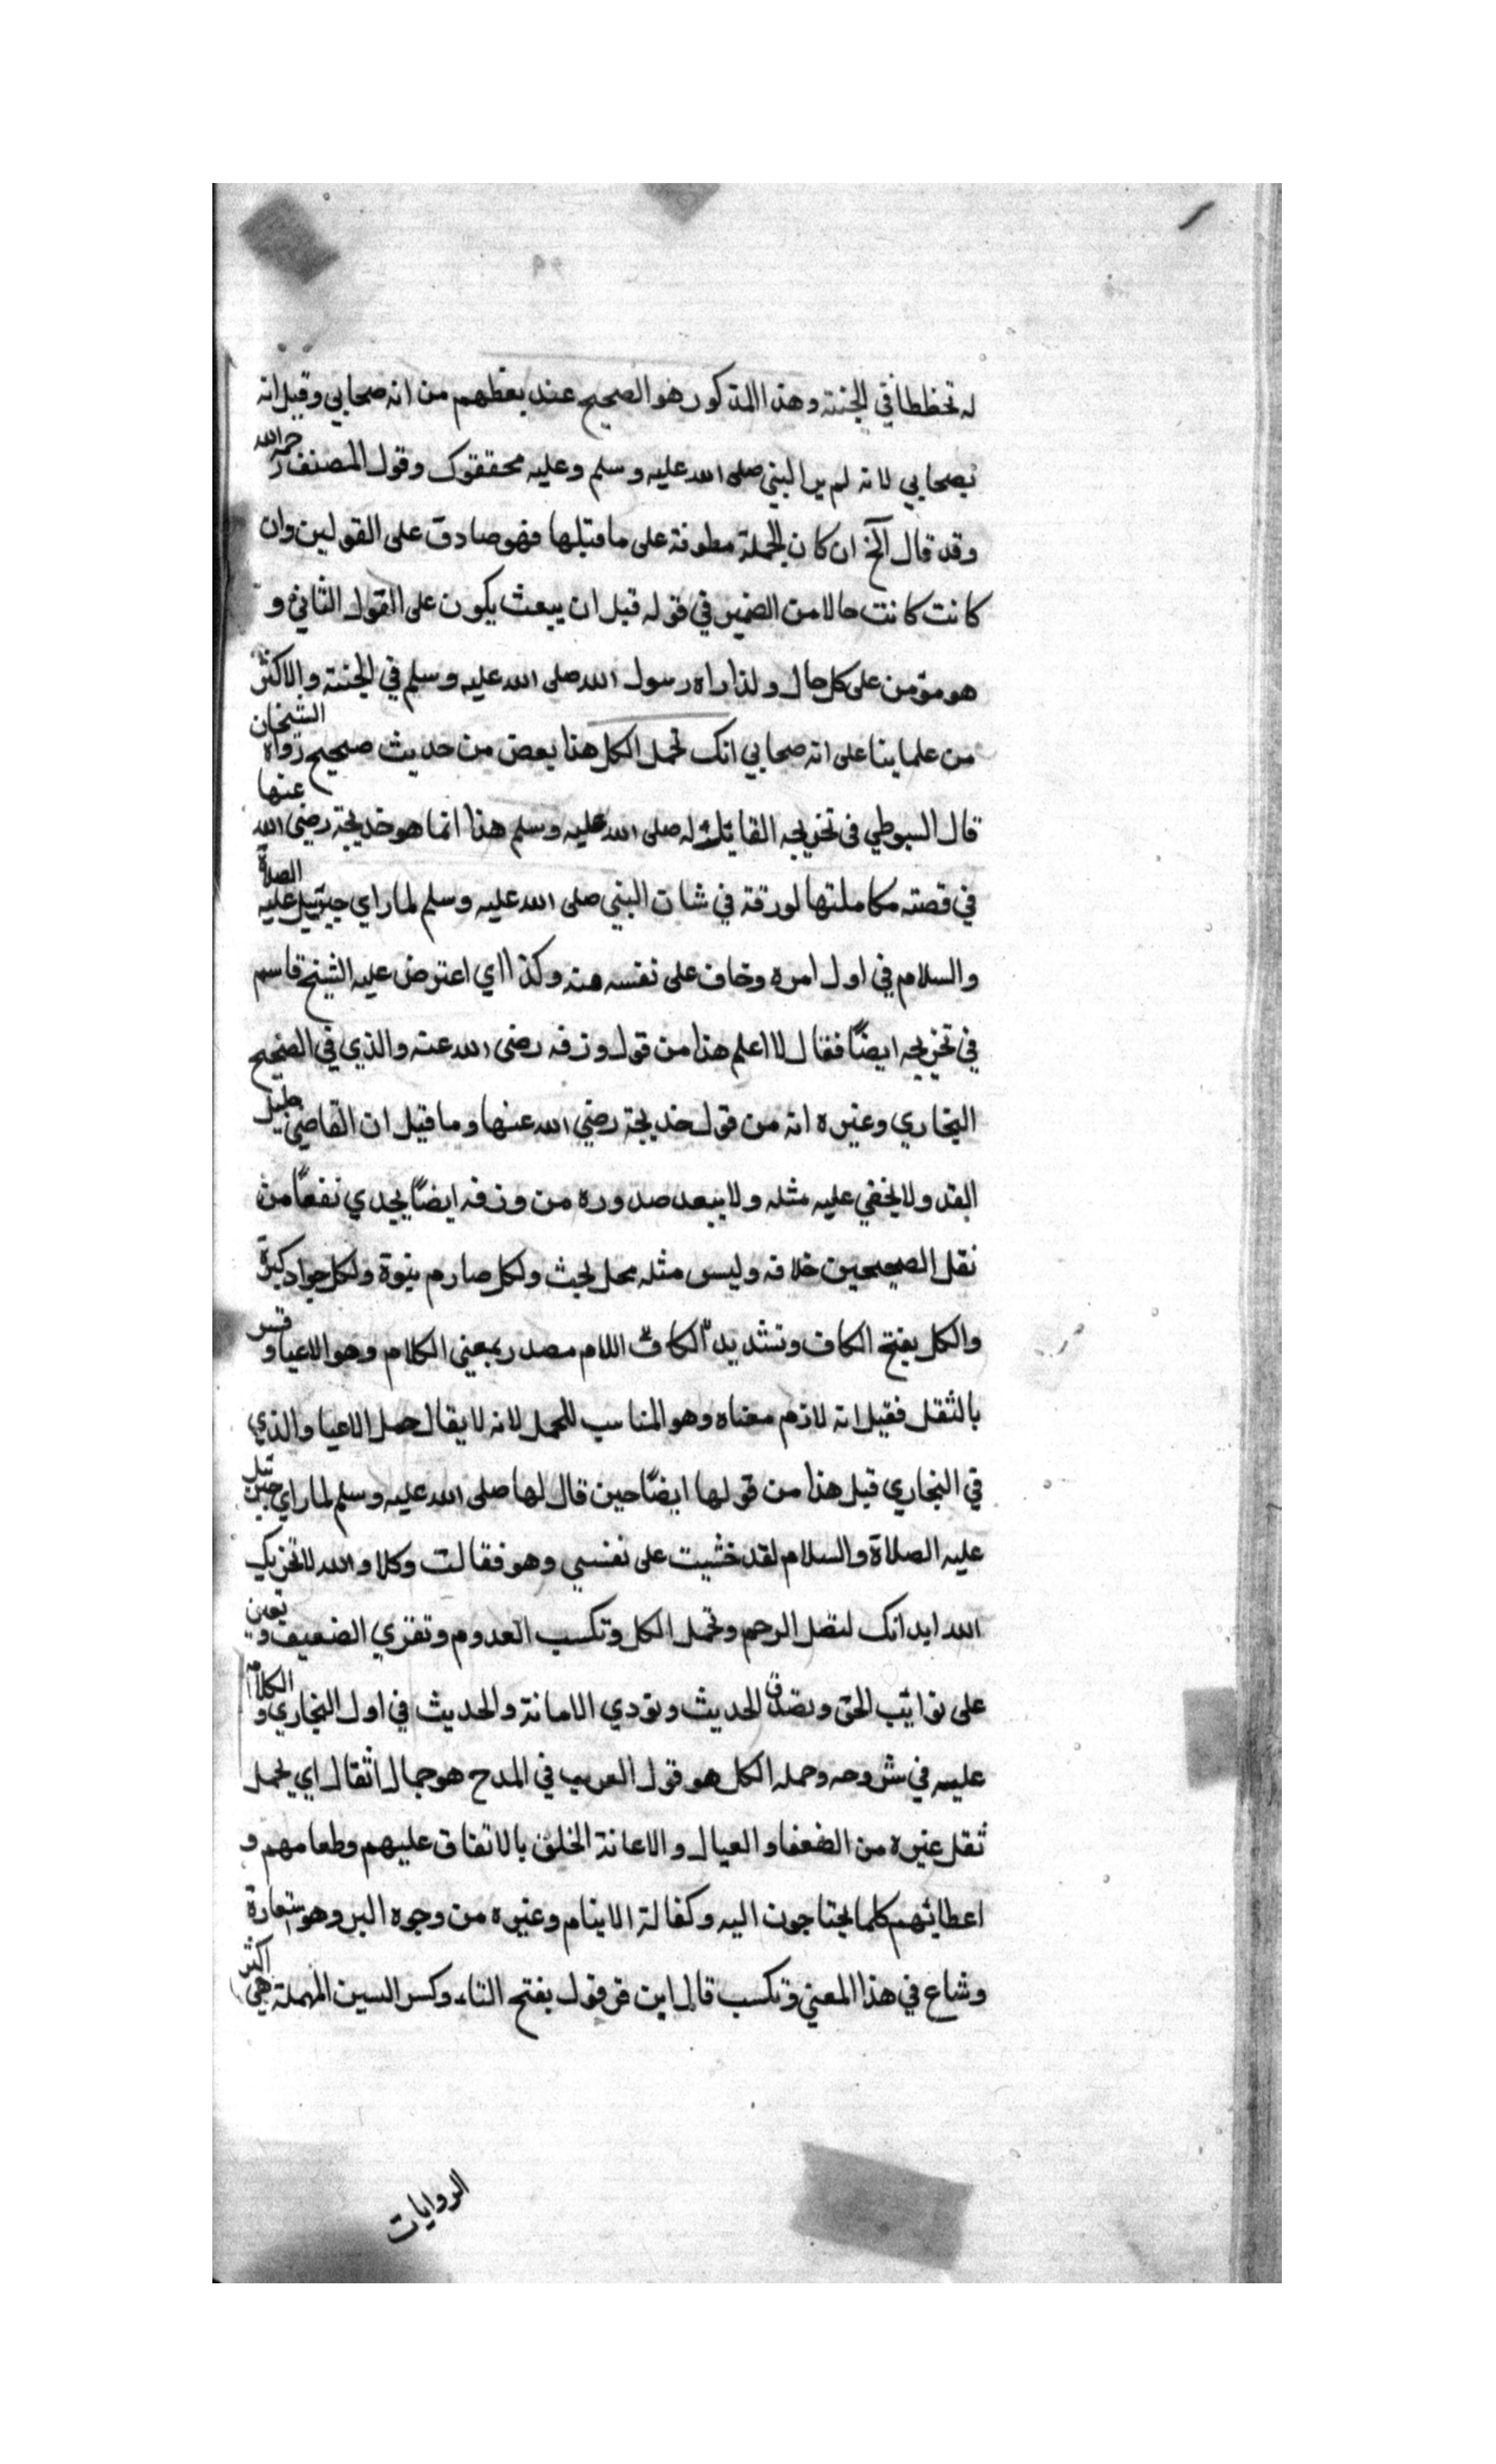 له تخططا في الجنة وهذا المذكور هو الصحيح عند بعظهم من انه صحابي وقيل انه
بصحابي لانه لم ير البني صلى الله عليه وسلم وعليه محققوك وقول المصنف رحمه الله
وقد قال الخ ان كان الجملة مطوفة على ما قبلها فهو صادق على القولين وان
كانت كانت حالا من الضمير في قوله قبل ان يبعث يكون على القول الثاني و
هو مؤمن على كل حال ولذا راه رسول الله صلى الله عليه وسلم في الجنة والاكثر
من علماينا على انه صحابي انك تحمل الكل هذا بعض من حديث صحيح رواه الشيخان
قال السيوطي في تخريجه القايل له صلى الله عليه وسلم هذا انما هو خديجة رضي الله عنها
في قصته مكاملتها لورقة في شان البني صلى الله عليه وسلم لما راي جبرييل عليه الصلاة
والسلام في اول امره وخاف على نفسه منه وكذا اي اعترض عليه الشيخ قاسم
في تخريجه ايضًا فقال لا اعلم هذا من قول ورقه رضي الله عنه والذي في الصحيح
البخاري وغيره انه من قول خديجة رضي الله عنها وما قيل ان القاضي جليل
القد ولا يخفي عليه مثله ولا يبعد صدوره من ورقه ايضًا يجدي نفعًا من
نقل الصحيحين خلافه وليس مثله محل بحث ولكل صارم ينوة ولكل جواد كبوة
والكل بفتح الكاف وتشديد الكاف اللام مصدر بمعني الكلام وهو الاعيا وفسر
بالثقل فقيل انه لازم معناه وهو المناسب للحمل لانه لا يقال حمل الاعيا والذي
في البخاري قبل هذا من قولها ايضًا حين قال لها صلى الله عليه وسلم لما راي جبرييل
عليه الصلاة والسلام لقد خشيت على نفسي وهو فقالت وكلا والله لا تخزيك
الله ابدا انك لتصل الرحم وتحمل الكل وتكسب العدوم وتقري الضعيف وتعين
على نوايب الحق وتصدق الحديث وتودي الامانة والحديث في اول البخاري والكلام
عليه في شروحه وحمله الكل هو قول العرب في المدح هو حمال اثقال اي يحمل
ثقل غيره من الضعفا والعيال والاعانة الخلق بالانفاق عليهم وطعامهم و
اعطائهم كلما يحتاجون اليه وكفالة الايتام وغيره من وجوه البر وهو استعارة
وشاع في هذا المعني وتكسب قال ابن قرقول بفتح التاء وكسر السين المهملة هي اكثر
الروايات